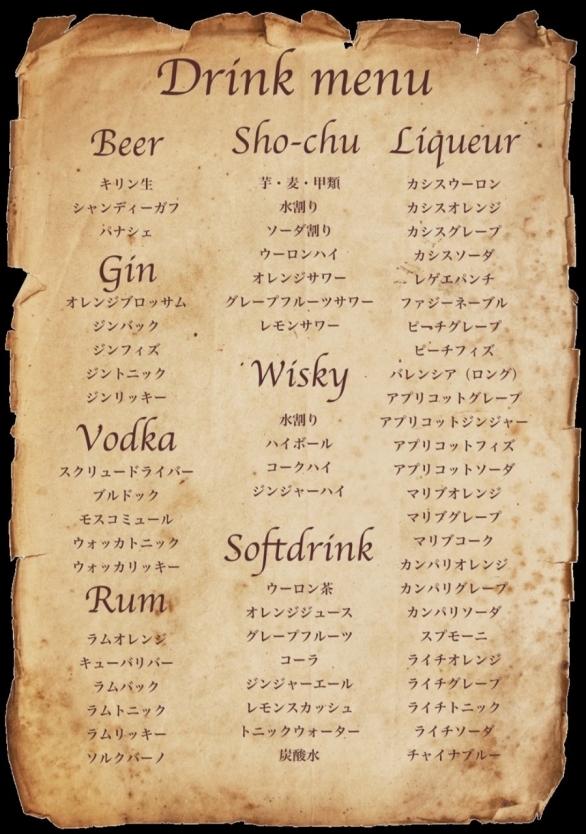 Drink menu
Beer
キリン生
シャンディーガフ
パナシェ
Gin
オレンジブロッサム
ジンバック
ジンフィズ
ジントニック
ジンリッキー
Vodka
スクリュードライバー
ブルドック
モスコミュール
ウォッカトニック
ウォッカリッキー
Rum
ラムオレンジ
キューバリバー
ラムバック
ラムトニック
ラムリッキー
ソルクバーノ
Sho-chu
芋・麦・甲類
水割り
ソーダ割り
ウーロンハイ
オレンジサワー
グレープフルーツサワー
レモンサワー
Wisky
水割り
ハイボール
コークハイ
ジンジャーハイ
Softdrink
ウーロン茶
オレンジジュース
グレープフルーツ
コーラ
ジンジャーエール
レモンスカッシュ
トニックウォーター
炭酸水
Liqueur
カシスウーロン
カシスオレンジ
カシスグレープ
カシスソーダ
レゲエパンチ
ファジーネーブル
ピーチグレープ
ピーチフィズ
バレンシア（ロング）
アプリコットグレープ
アプリコットジンジャー
アプリコットフィズ
アプリコットソーダ
マリブオレンジ
マリブグレープ
マリブコーク
カンパリオレンジ
カンパリグレープ
カンパリソーダ
スプモーニ
ライチオレンジ
ライチグレープ
ライチトニック
ライチソーダ
チャイナブルー